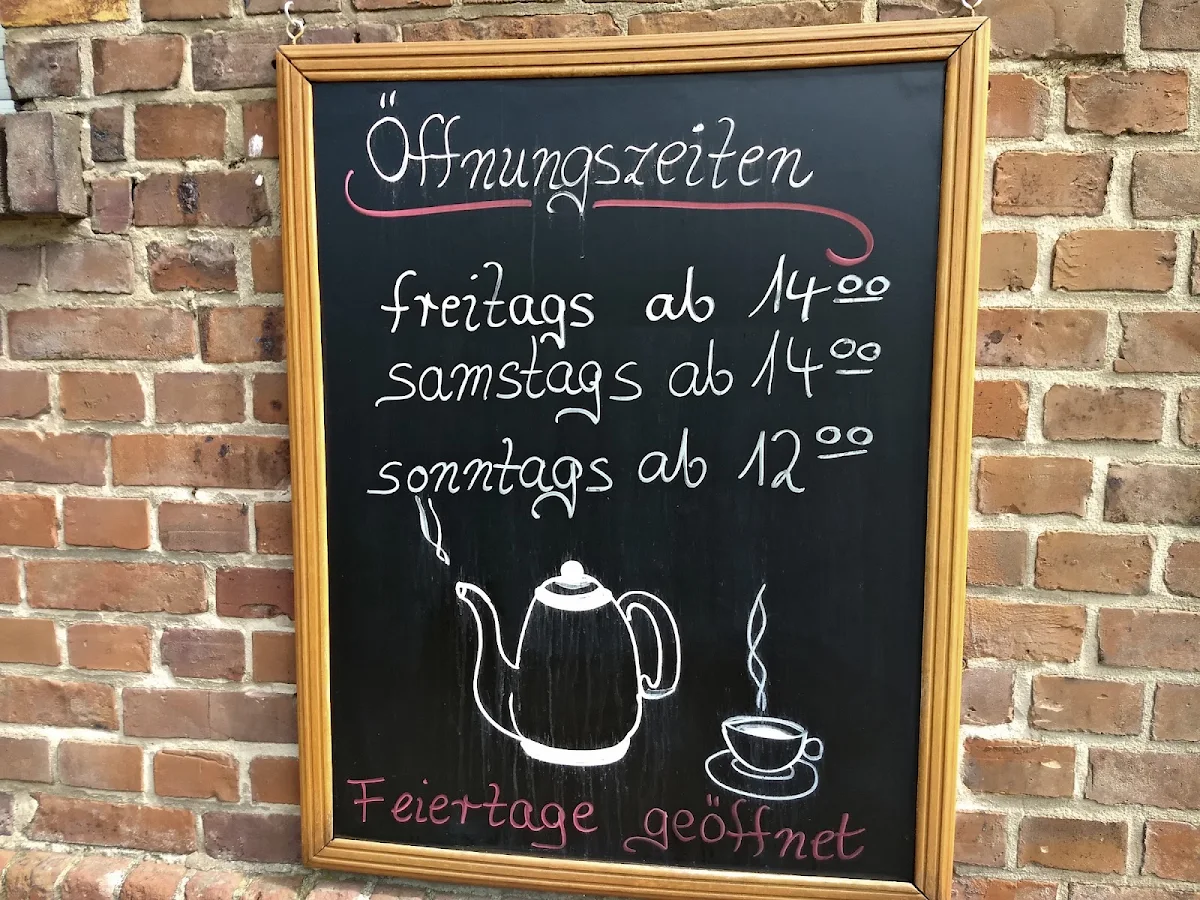 Öffnungszeiten
freitags ab 14⁰⁰
samstags ab 14⁰⁰
sonntags ab 12⁰⁰
Feiertage geöffnet